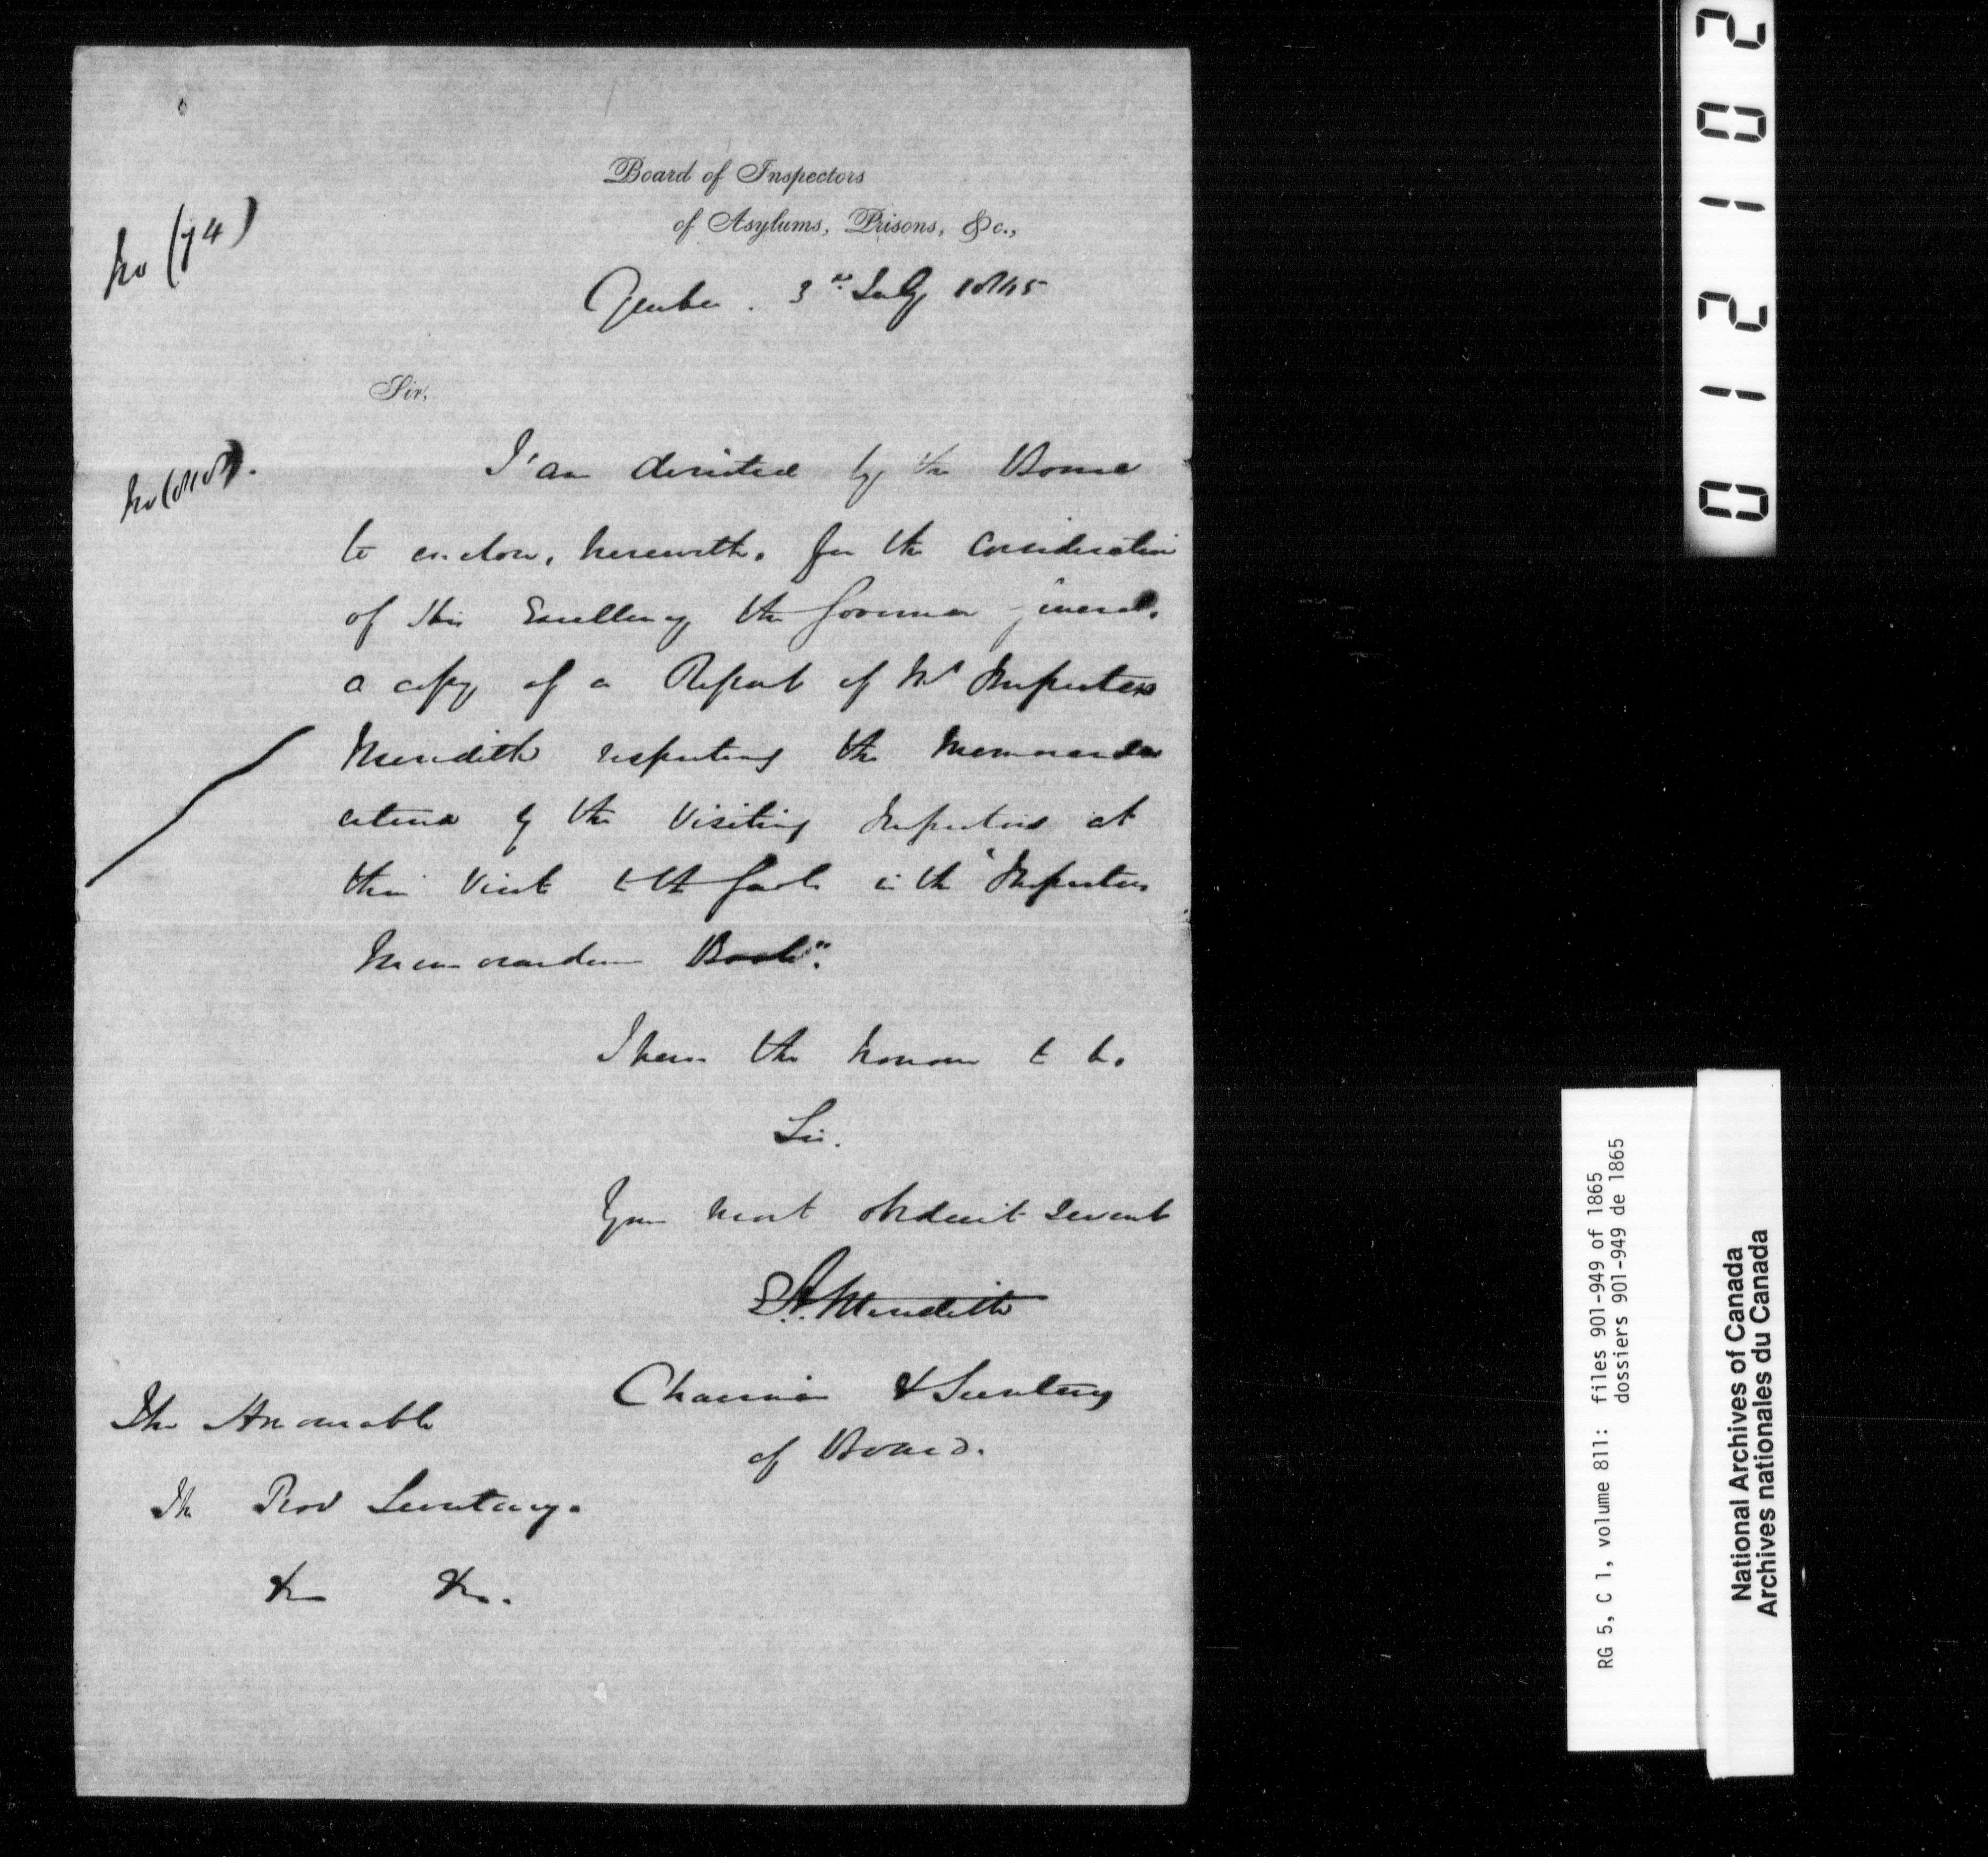 Board of Inspectors
of Asylums, Prisons, &c.,
No (74)
Quebec. 3rd July 1865
Sir,
I am directed by the Board
No
to enclose, herewith, for the consideration
of His Excellency the Governor General,
a copy of a Report of Mr Inspector
Meredith respecting the Memoranda
by the Visiting Inspectors at
their Visit to the Gaols in the "Inspectors
Memorandum Book".
I have the honour to be,
Sir.
Your most obedient Servant
E.A. Meredith
Chairman & Secretary
of Board.
The Honourable
The Prov Secretary.
&c &c.
012102
RG 5, C 1, volume 811: files 901-949 of 1865
dossiers 901-949 de 1865
National Archives of Canada
Archives nationales du Canada